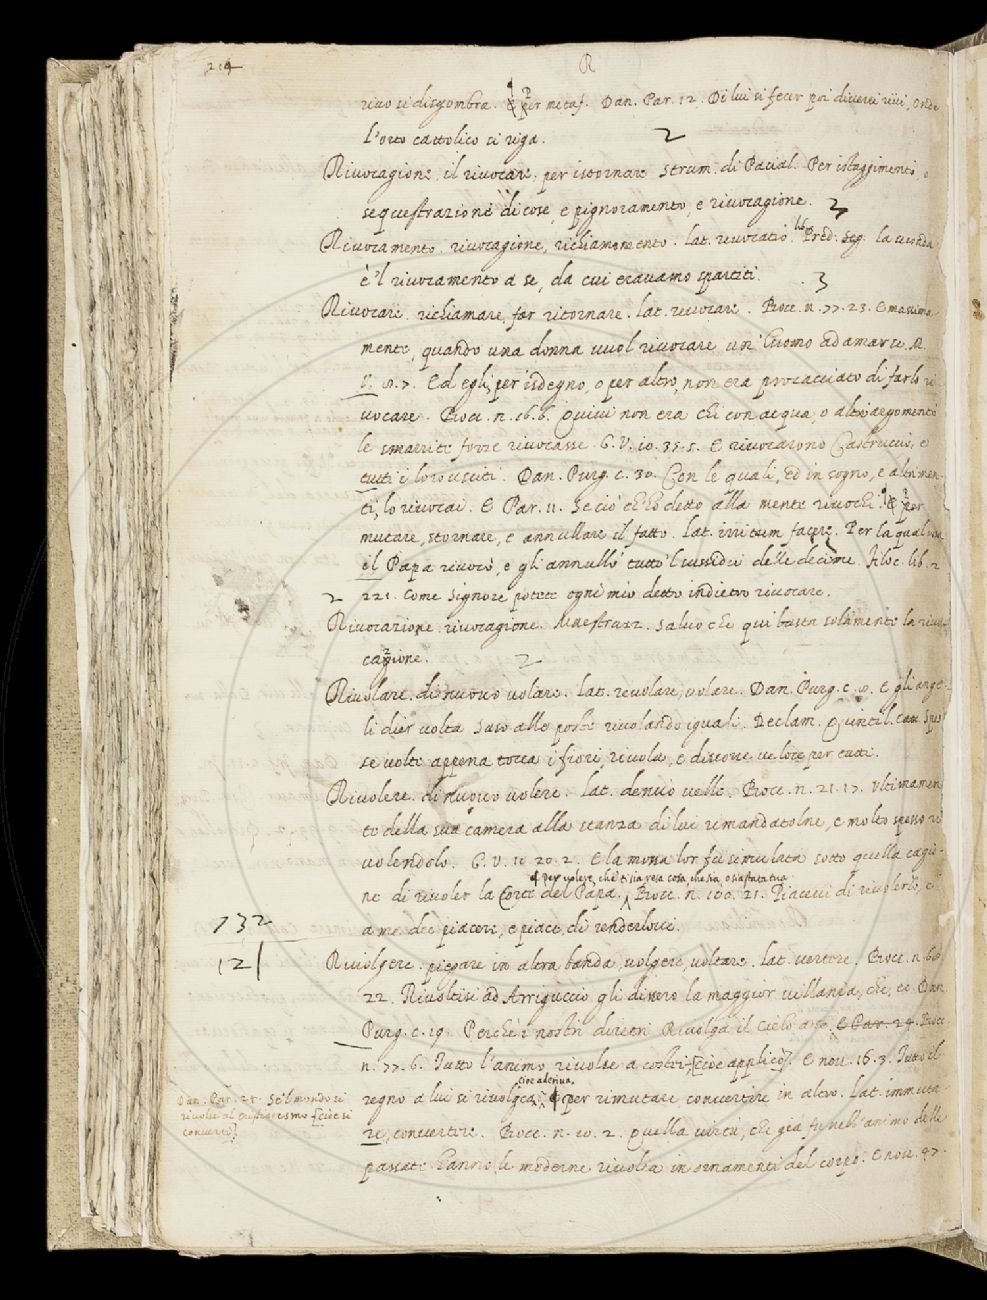 214
R
rivo si disgombra. E per metaf. Dan. Par. 12. Di lui si fecer poi diversi rivi, Onde
l'orto cattolico si riga.
2
Rivocagione, il rivocare, per istornare. Strum. di Pacial. Per istaggimento, o
sequestrazione di cose, e pignoramento, e rivocagione. 3
Rivocamento. rivocagione, richiamamento. lat. revocatio. lib. Pred. la vivanda
è 'l rivocamento a se, da cui eravamo spartiti. 3
Rivocare. richiamare, far ritornare. lat. revocare. Bocc. n. 77. 23. E massima-
mente, quando una donna vuol rivocare un' huomo ad amarla. M.
V. 8. 7. Ed egli, per isdegno, o per altro, non era procacciato di farlo ri
vocare. Bocc. n. 16. 6. Quivi non era chi con acqua, o altro argomento
le smarrite forze rivocasse. G. V. 10. 35. 5. E rivocarono Castruccio, e
tutti i loro usciti. Dan. Purg. c. 30. Con le quali, ed in sogno, e altrimen-
ti, lo rivocai. E Par. 11. Se ciò ch' ho detto alla mente rivochi. E per
mutare, stornare, e annullare il fatto. lat. irritum facere. Per la qual cosa
il Papa rivocò, e gli annullò tutto 'l sussidio delle decime. Filoc. lib. 2
2 221. Come Signore potete ogni mio detto indietro rivocare.
Rivocazione. rivocagione. Maestruzz. Salvo che qui basta solamente la rivo
cazione. 2
Rivolare. di nuovo volare. lat. revolare, volare. Dan. Purg. c. 8. E gli ange-
li dier volta Suso alle poste rivolando iguali. Declam. Quintil. Spes
se volte appena tocca i fiori, rivola, e discorre veloce per tutti.
Rivolere. di nuovo volere. lat. denuo velle. Bocc. n. 21. 17. Ultimamen
te della sua camera alla stanza di lui rimandatolne, e molto spesso ri
volendolo. G. V. 10. 20. 2. E la mossa lor fu simulata sotto quella cagio-
¶ per volere, che ti sia resa cosa, che sia, o sia stata tua
ne di rivoler la Corte del Papa. Bocc. n. 100. 21. Piacevi di rivolerlo, e
732
a me dee piacere, e piace, di renderlovi.
121
Rivolgere. piegare in altra banda, volgere, voltare. lat. vertere. Bocc. n. 68
22. Rivoltisi ad Arriguccio gli dissero la maggior villania, che, ec. Dan.
Purg. c. 19. Perchè i nostri diretri Rivolga il Cielo a se, E Par. 24. Bocc.
n. 77. 6. Tutto l'animo rivolse a costei, [cioè applicò]. E nov. 16. 3. Tutto il
cioè aderiva.
regno a lui si rivolgea. ¶ per rimutare convertire in altro. lat. immuta-
re, convertere. Bocc. n. 10. 2. Quella virtù, che già fu nell' animo delle
passate hanno le moderne rivolta in ornamenti del corpo. E nov. 97.
Dan. Par. 25. Se 'l mondo si
rivolse al cristianesmo [cioè si
convertì]